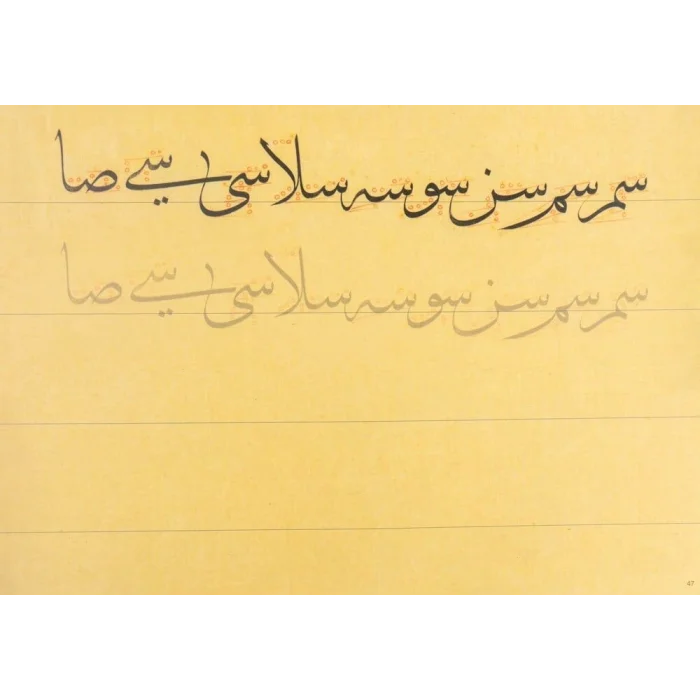 سم سم سن سو سه سلا سى سے صا
سم سم سن سو سه سلا سى سے صا
47